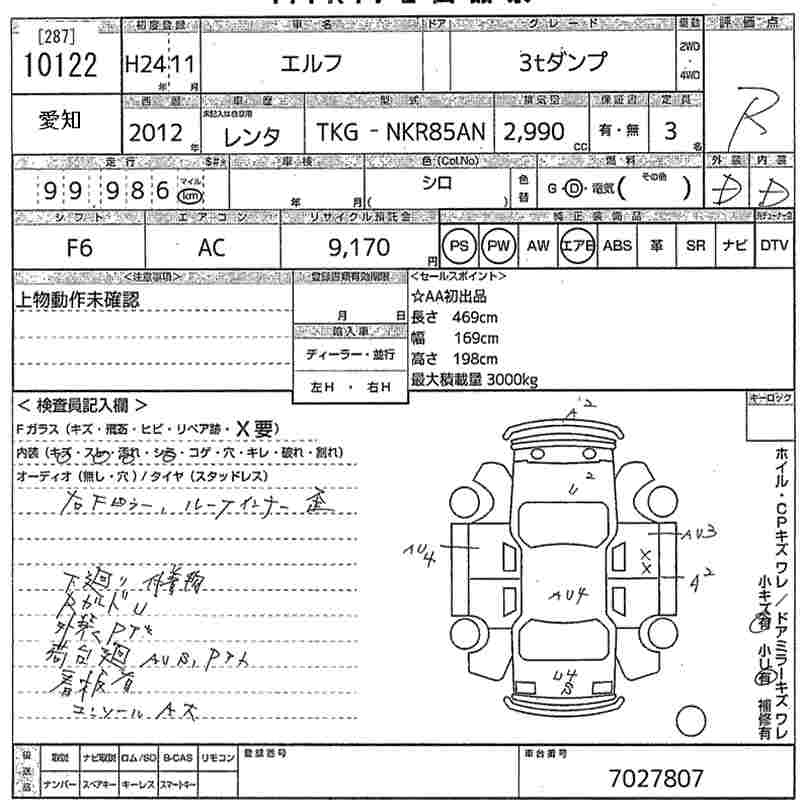 [287]
10122
初度登録
車名
ドア
グレード
駆動
評価点
H24 11
年 月
エルフ
3tダンプ
2WD
・
4WD
R
愛知
西暦
車歴
型式
排気量
保証書
定員
2012 年
未記入は自家用
レンタ
TKG - NKR85AN
2,990 CC
有・無
3 名
走行
S#*
車検
色(Col.No)
燃料
外装
内装
99986
マイル
km
年 月
シロ
( )
色替
G・D・電気( その他 )
D
D
シフト
エアコン
リサイクル預託金
純正装備品
F6
AC
9,170 円
PS PW AW エアB ABS 革 SR ナビ DTV
<注意事項>
登録書類有効期限
<セールスポイント>
上物動作未確認
月 日
☆AA初出品
長さ 469cm
幅 169cm
高さ 198cm
最大積載量 3000kg
輸入車
ディーラー・並行
左H ・ 右H
< 検査員記入欄 >
キーロック
Fガラス(キズ・飛石・ヒビ・リペア跡・X要)
内装(キズ・スレ・汚れ・シミ・コゲ・穴・キレ・破れ・割れ)
オーディオ(無し・穴)/タイヤ(スタッドレス)
下廻り
外装 P
荷台廻 AUB, P
看板有
コンソール A
A2
U2
AU4
AU3
XX
A2
AU4
U4
B
ホイル・CPキズワレ/ドアミラーキズワレ
小キズ有 小U有 補修有
後送品
取説 ナビ取説 ロム/SD B-CAS リモコン
ナンバー スペアキー キーレス スマートキー
登録番号
車台番号
7027807